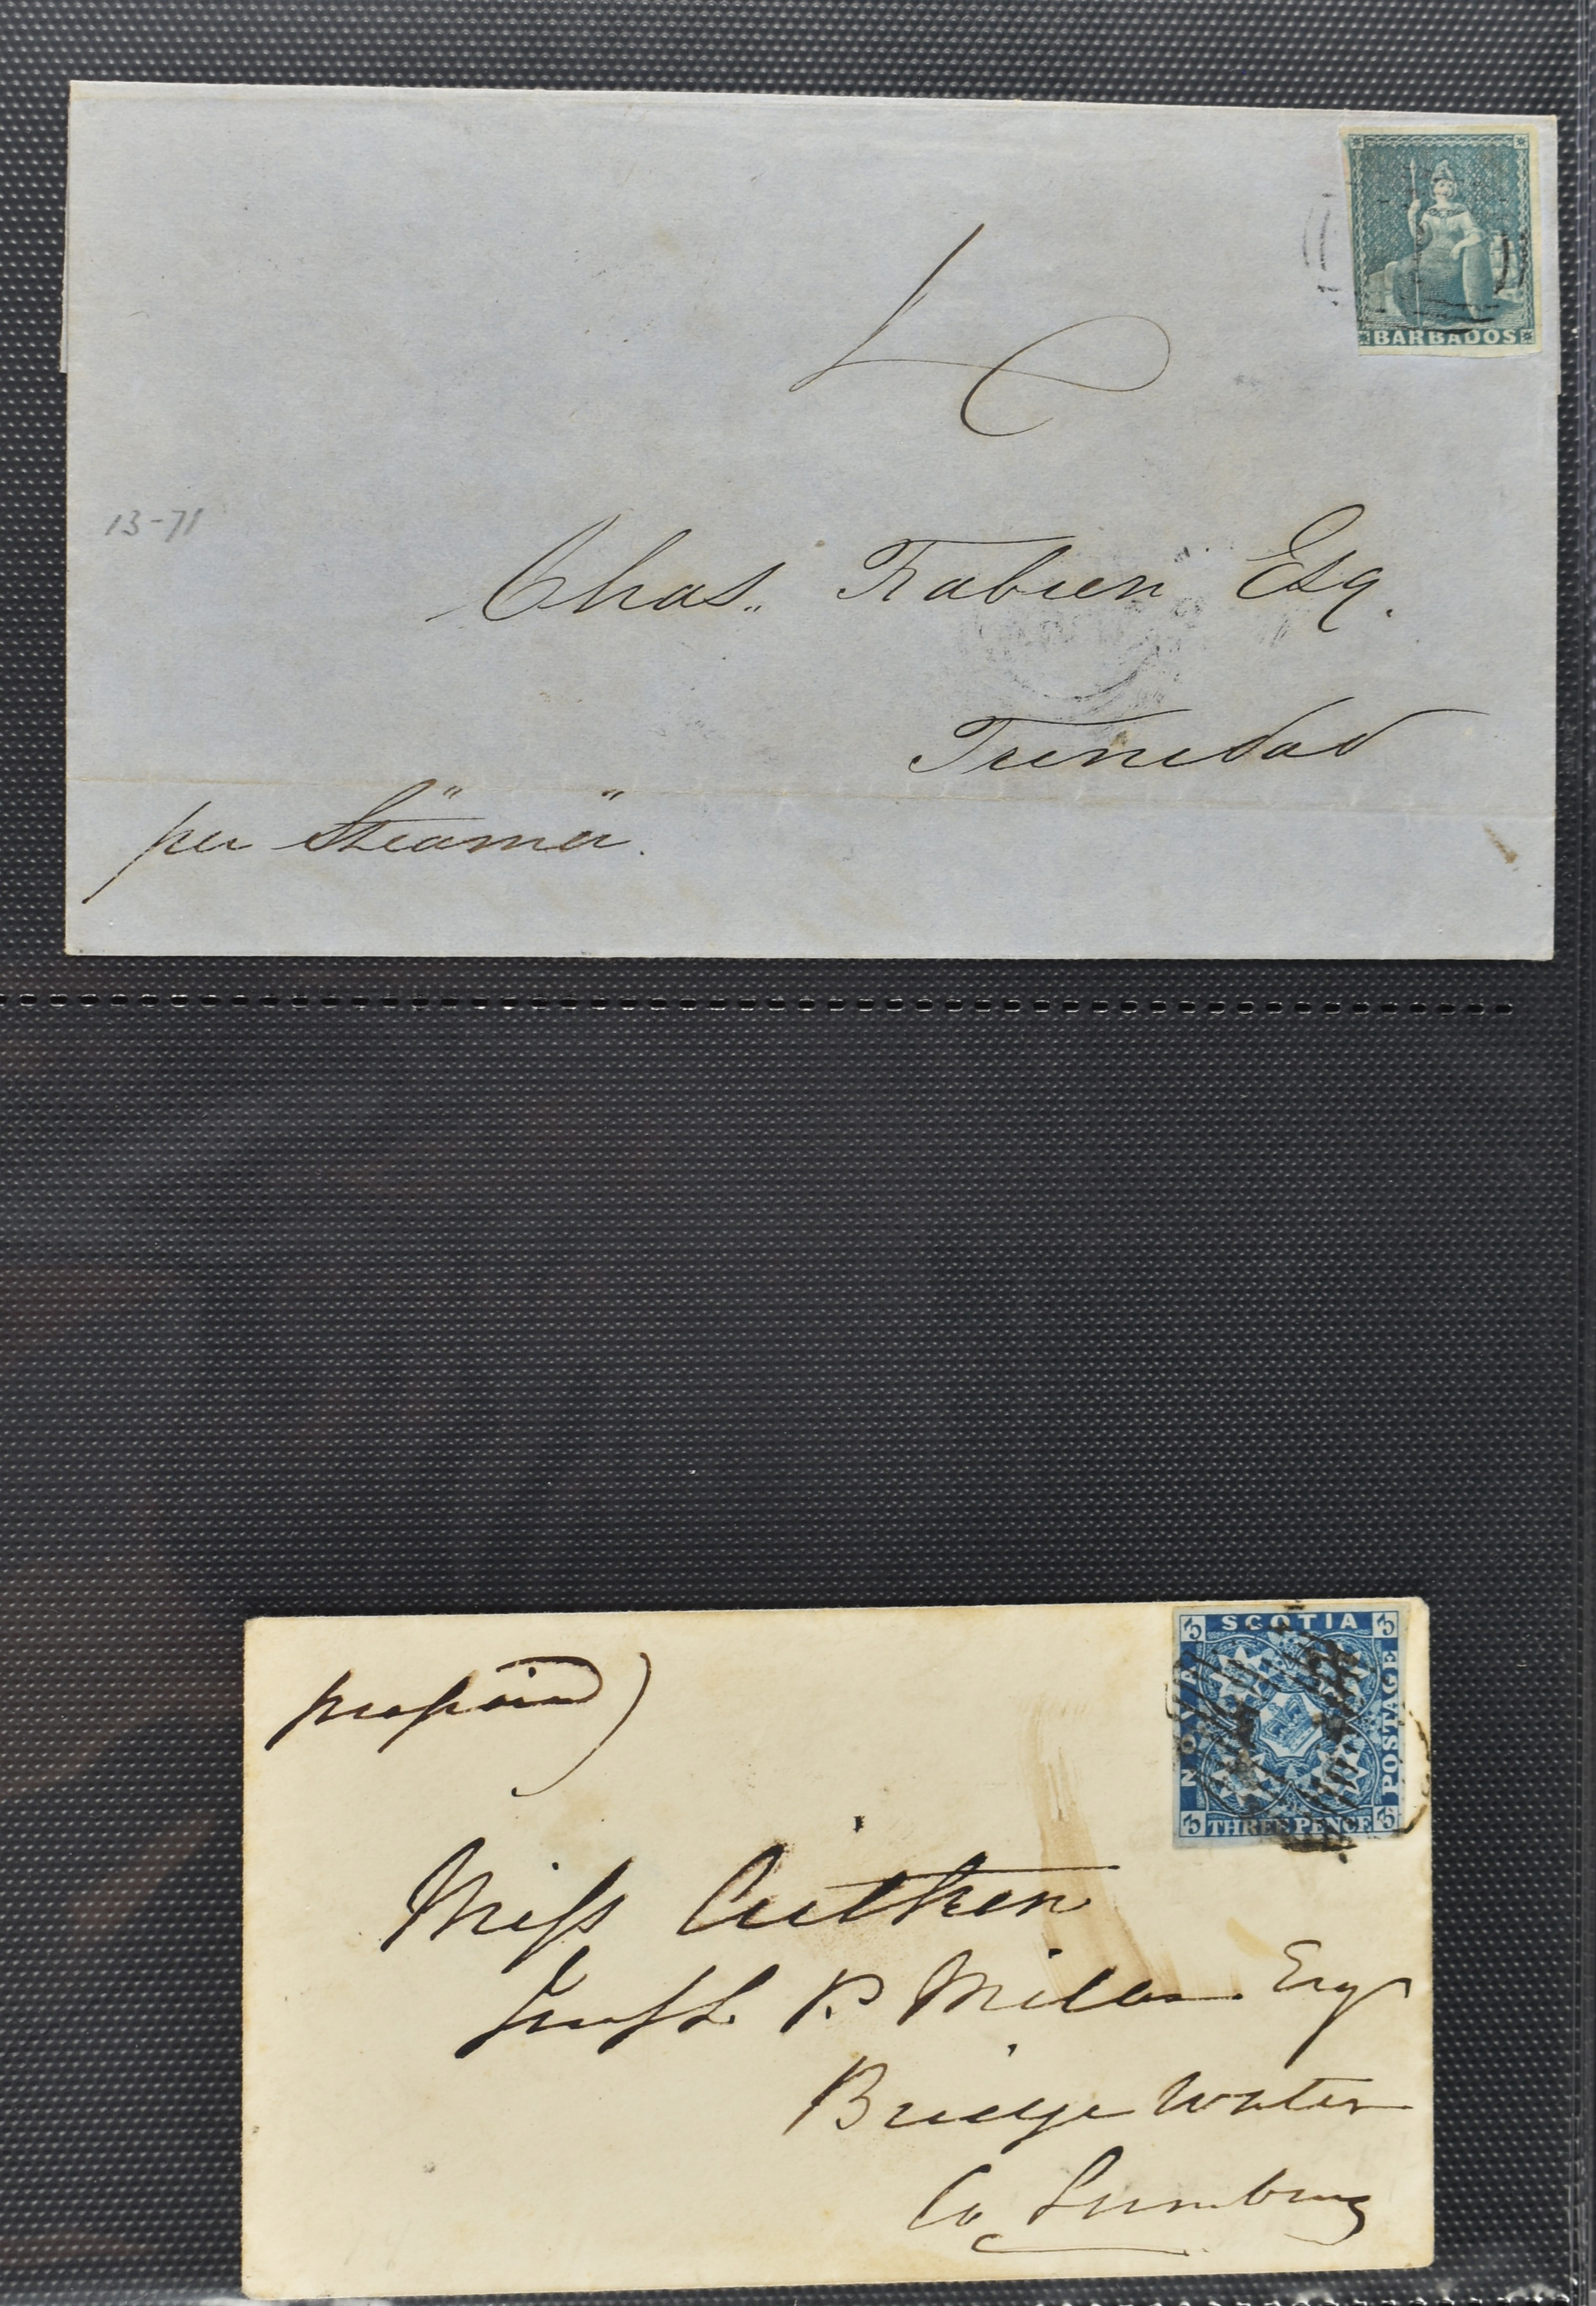 BARBADOS
4
13-71
Chas. Fabien Esq.
Trinidad
per Steamer.
prepaid
SCOTIA
NOVA
POSTAGE
THREE PENCE
3
3
3
3
Miss Aitken
P Miller Esq
Bridge Water
Co Lunenburg